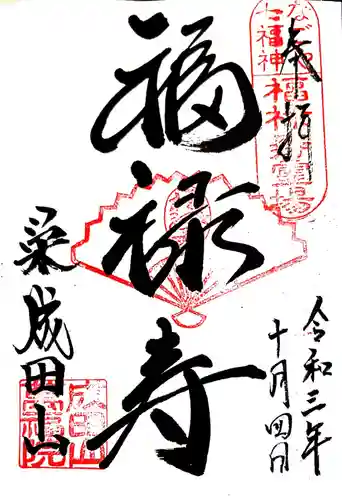 奉拝
福禄寿
令和三年
十月四日
成田山
七福神